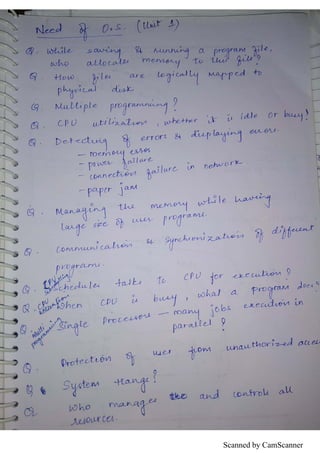 Need of O.S. (Unit 1)
Q. While saving & running a program file,
who allocates memory to this file?
Q. How files are logically mapped to
physical disk
Q. Multiple programming?
Q. CPU utilization, whether it is idle or busy?
Q. Detecting of errors & displaying errors
- memory error
- power failure
- connection failure in network
- paper jam
Q. Managing the memory while having
large size of user programs.
Q. Communication & Synchronization of different
programs.
Q. Scheduler talks to CPU for execution?
Q. When CPU is busy, what a program does?
Q. Single Processor — many jobs execution in
parallel?
Multi
programming
Q. Protection of user from unauthorized access
Q. System Hange?
Q. Who manages and controls all
resources.
Scanned by CamScanner